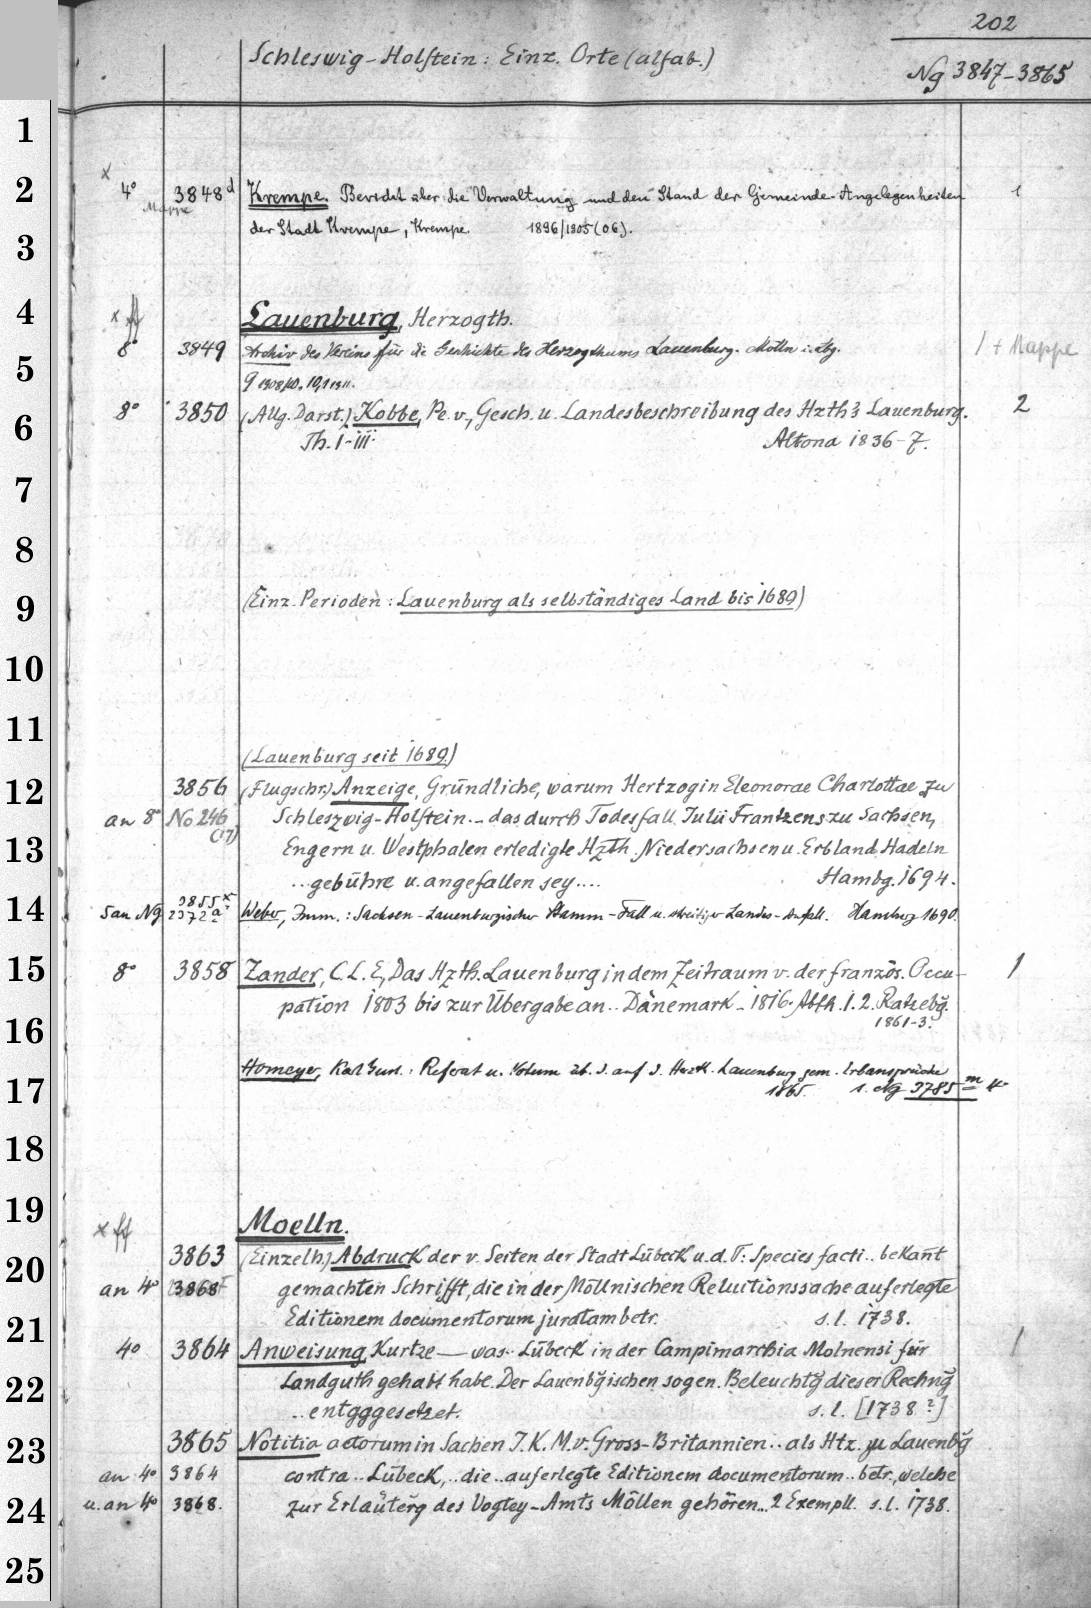 202
Schleswig-Holstein: Einz. Orte (alfab.)
Ng 3847-3865
1
x
2
4° 3848d Krempe. Bericht über die Verwaltung und den Stand der Gemeinde-Angelegenheiten 1
Mappe
der Stadt Krempe, Krempe. 1896/1905(06).
3
4
x ff Lauenburg, Herzogth.
8° 3849 Archiv des Vereins für die Geschichte des Herzogthums Lauenburg. Mölln i. Lbg. 1 + Mappe
5
9 1908/10. 10,1 1911.
8° 3850 (Allg. Darst.) Kobbe, Pe. v., Gesch. u. Landesbeschreibung des Hzth's Lauenburg. 2
6
Th. I-III. Altona 1836-7.
7
8
9
(Einz. Perioden: Lauenburg als selbständiges Land bis 1689)
10
11
(Lauenburg seit 1689.)
12
3856 (Flugschr.) Anzeige, Gründliche, warum Hertzogin Eleonorae Charlottae zu
an 8° No 246 Schleszwig-Holstein.- das durch Todesfall Julii Frantzens zu Sachsen,
(17)
13
Engern u. Westphalen erledigte Hzth. Niedersachsen u. Erbland Hadeln
...gebühre u. angefallen sey.... Hambg. 1694.
14
3855x
5 an Ng 2372a Weber, Imm.: Sachsen-Lauenburgischer Stamm-Fall u. streitiger Landes-Anfall. Hamburg 1690.
15
8° 3858 Zander, C. L. E, Das Hzth. Lauenburg in dem Zeitraum v. der französ. Occu- 1
pation 1803 bis zur Übergabe an.. Dänemark - 1816. Abth. 1. 2. Ratzebg.
16
1861-3.
Homeyer, Karl Gust.: Referat u. Votum üb. d. auf d. Herzth. Lauenburg gem. Erbansprüche
17
1865. s. Ng 3785m 4°
18
19
x ff Moelln.
3863 (Einzelh.) Abdruck der v. Seiten der Stadt Lübeck u. d. T: Species facti.. bekant
20
an 4° 3868 gemachten Schrifft, die in der Möllnischen Reluitionssache auferlegte
Editionem documentorum juratam betr. s. l. 1738.
21
4° 3864 Anweisung, Kurtze — was.. Lübeck in der Campimarchia Molnensi für 1
22
Landguth gehabt habe. Der Lauenbgischen sogen. Beleuchtg dieser Rechng
..entgggesetzet. s. l. [1738?]
23
3865 Notitia actorum in Sachen I. K. M. v. Gross-Britannien.. als Htz. zu Lauenbg
an 4° 3864 contra.. Lübeck,.. die.. auferlegte Editionem documentorum.. betr., welche
24
u. an 4° 3868. zur Erläuterg des Vogtey-Amts Möllen gehören... 2 Exempll. s. l. 1738.
25